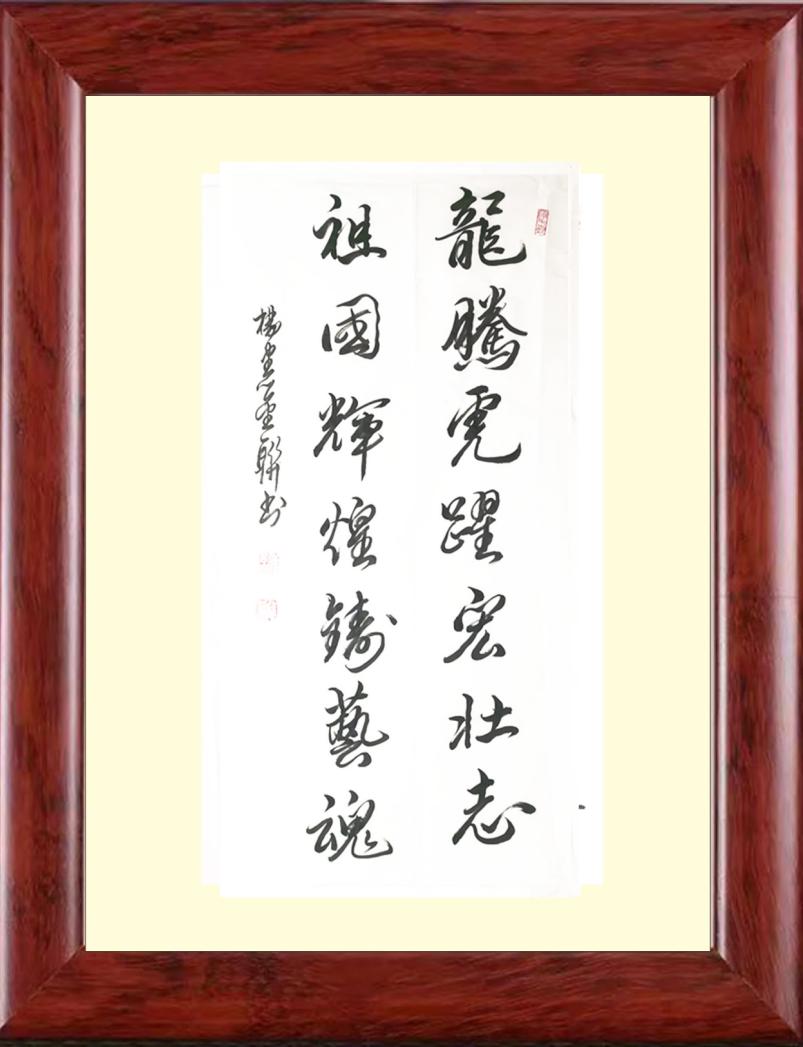 龍騰虎躍宏壯志
祖國輝煌鑄藝魂
楊聯書